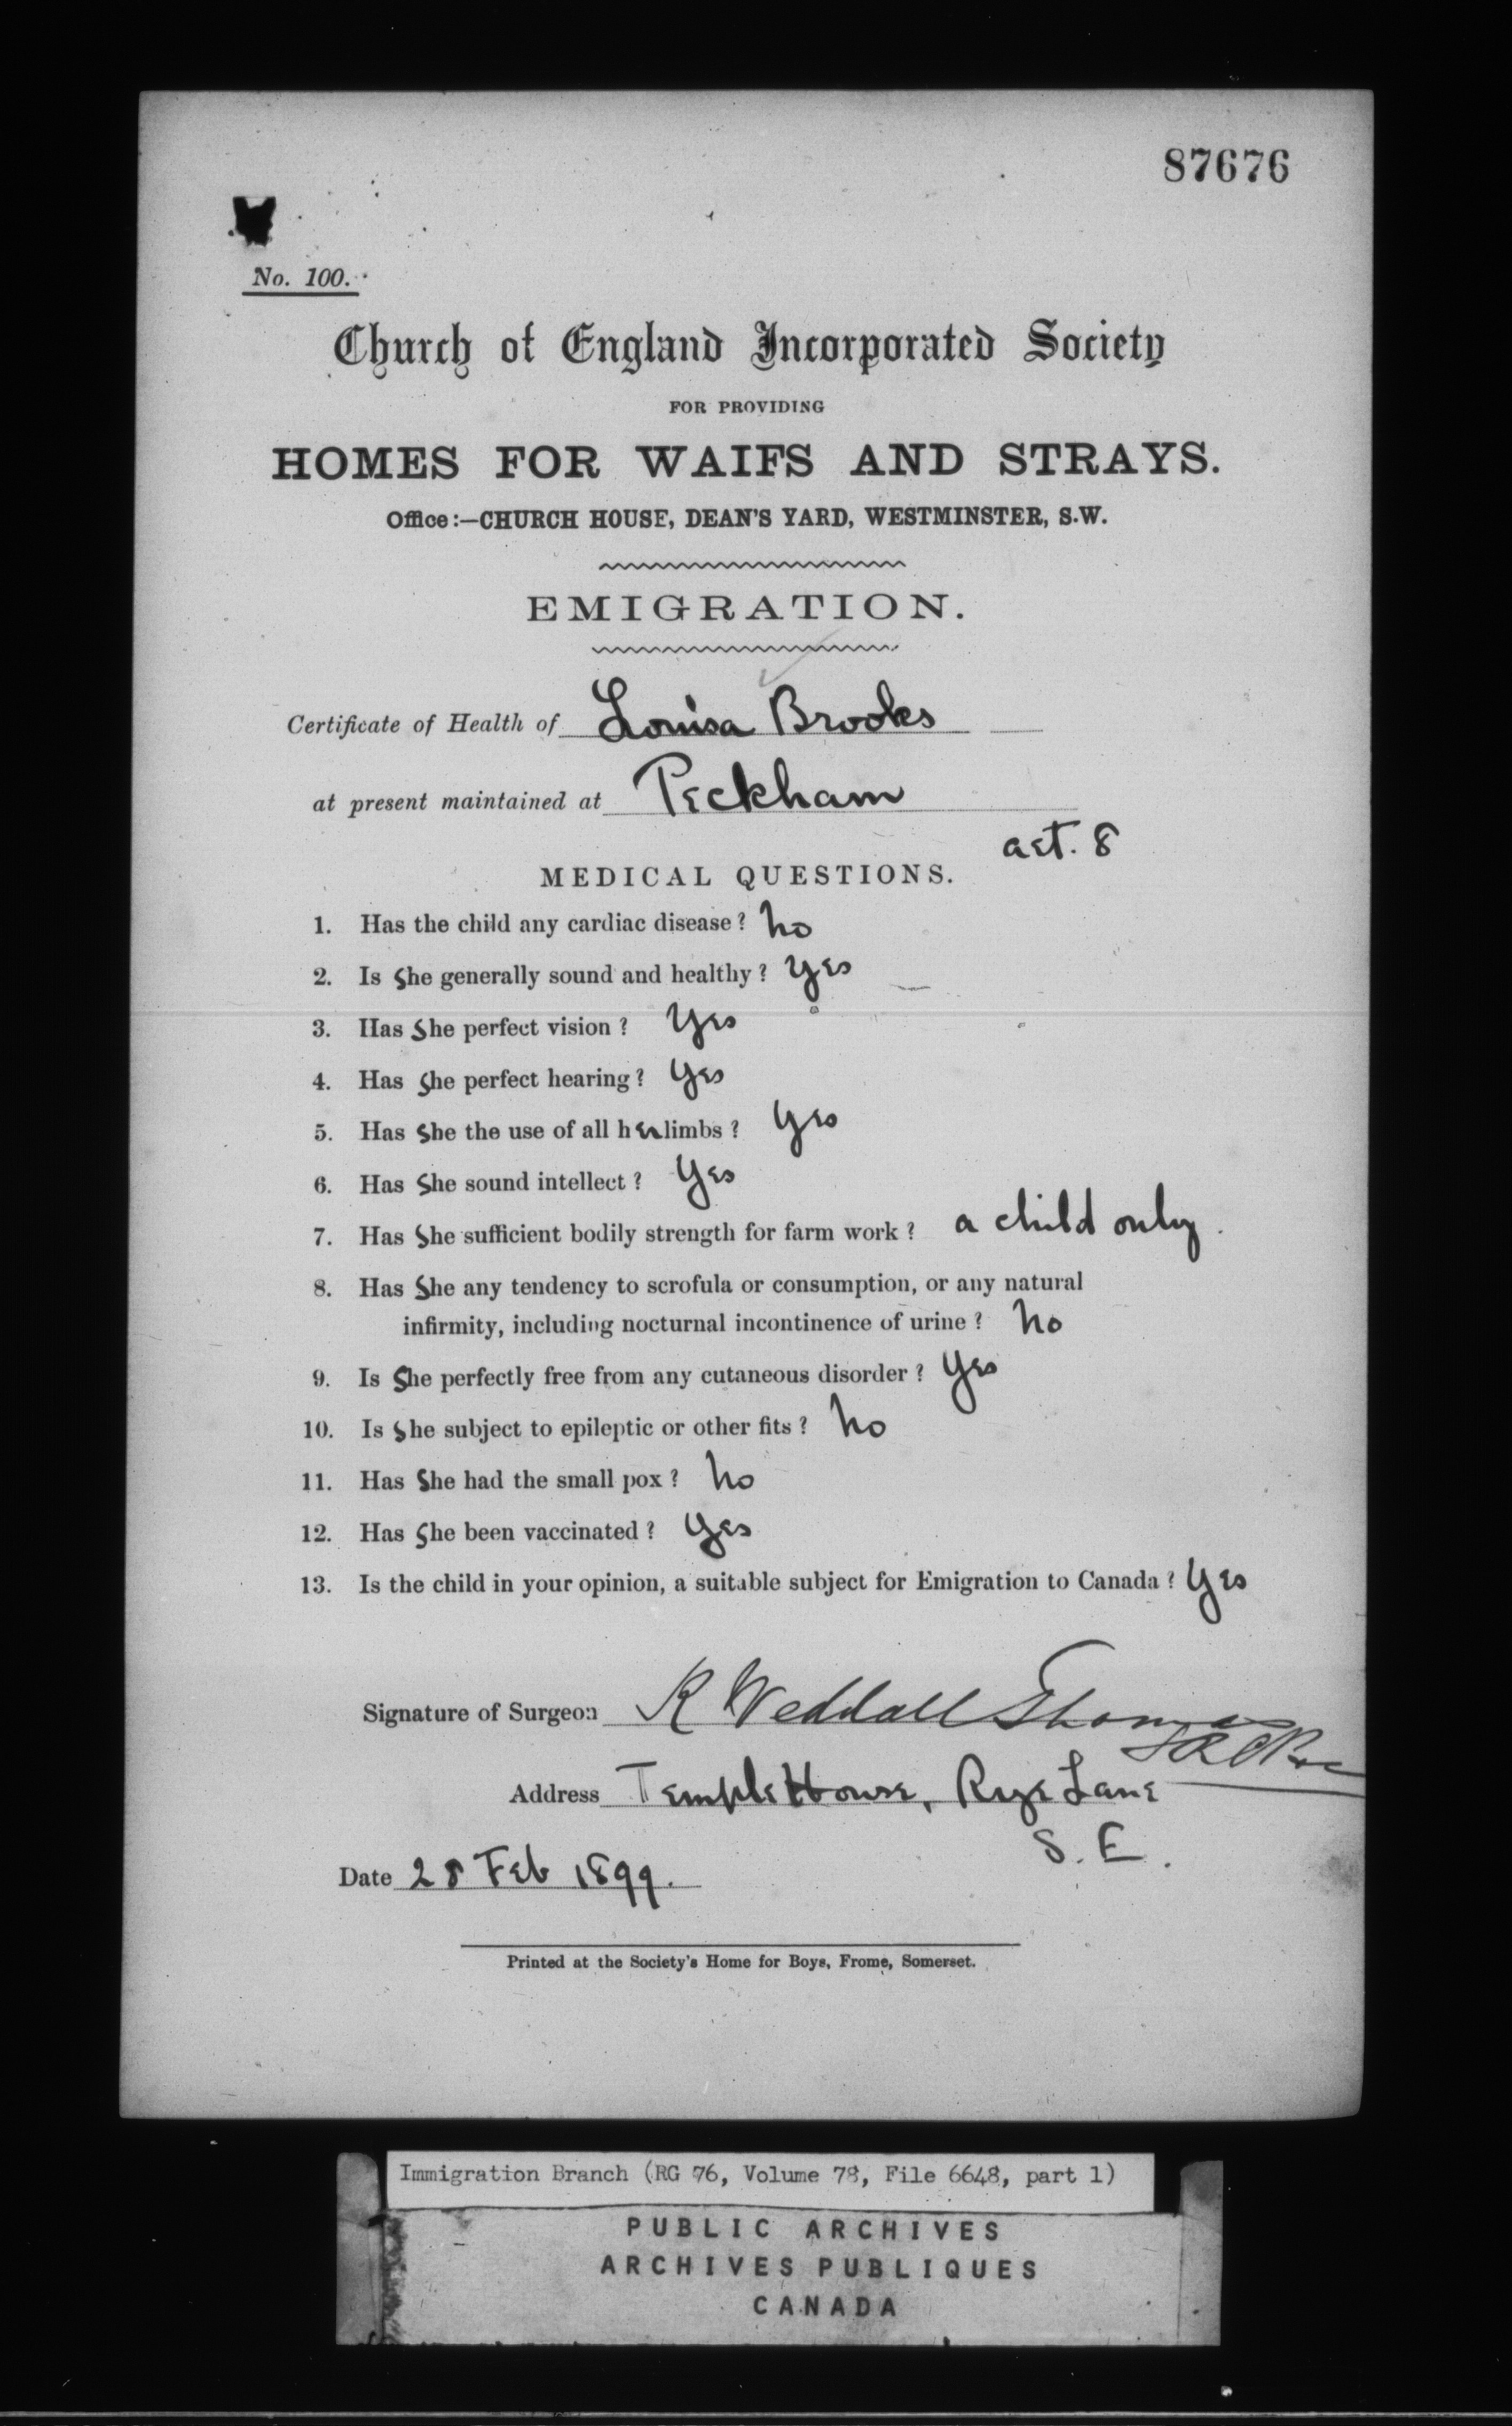 87676
No. 100.
Church of England Incorporated Society
FOR PROVIDING
HOMES FOR WAIFS AND STRAYS.
Office:—CHURCH HOUSE, DEAN'S YARD, WESTMINSTER, S.W.
EMIGRATION.
Certificate of Health of Louisa Brooks
at present maintained at Peckham
aet. 8
MEDICAL QUESTIONS.
1. Has the child any cardiac disease? no
2. Is She generally sound and healthy? yes
3. Has She perfect vision? Yes
4. Has She perfect hearing? Yes
5. Has She the use of all her limbs? Yes
6. Has She sound intellect? Yes
7. Has She sufficient bodily strength for farm work? a child only.
8. Has She any tendency to scrofula or consumption, or any natural
infirmity, including nocturnal incontinence of urine? no
9. Is She perfectly free from any cutaneous disorder? Yes
10. Is She subject to epileptic or other fits? no
11. Has She had the small pox? no
12. Has She been vaccinated? Yes
13. Is the child in your opinion, a suitable subject for Emigration to Canada? Yes
Signature of Surgeon R Weddall Thomas
Address Temple House, Rye Lane
S. E.
Date 28 Feb 1899.
Printed at the Society's Home for Boys, Frome, Somerset.
Immigration Branch (RG 76, Volume 78, File 6648, part 1)
PUBLIC ARCHIVES
ARCHIVES PUBLIQUES
CANADA